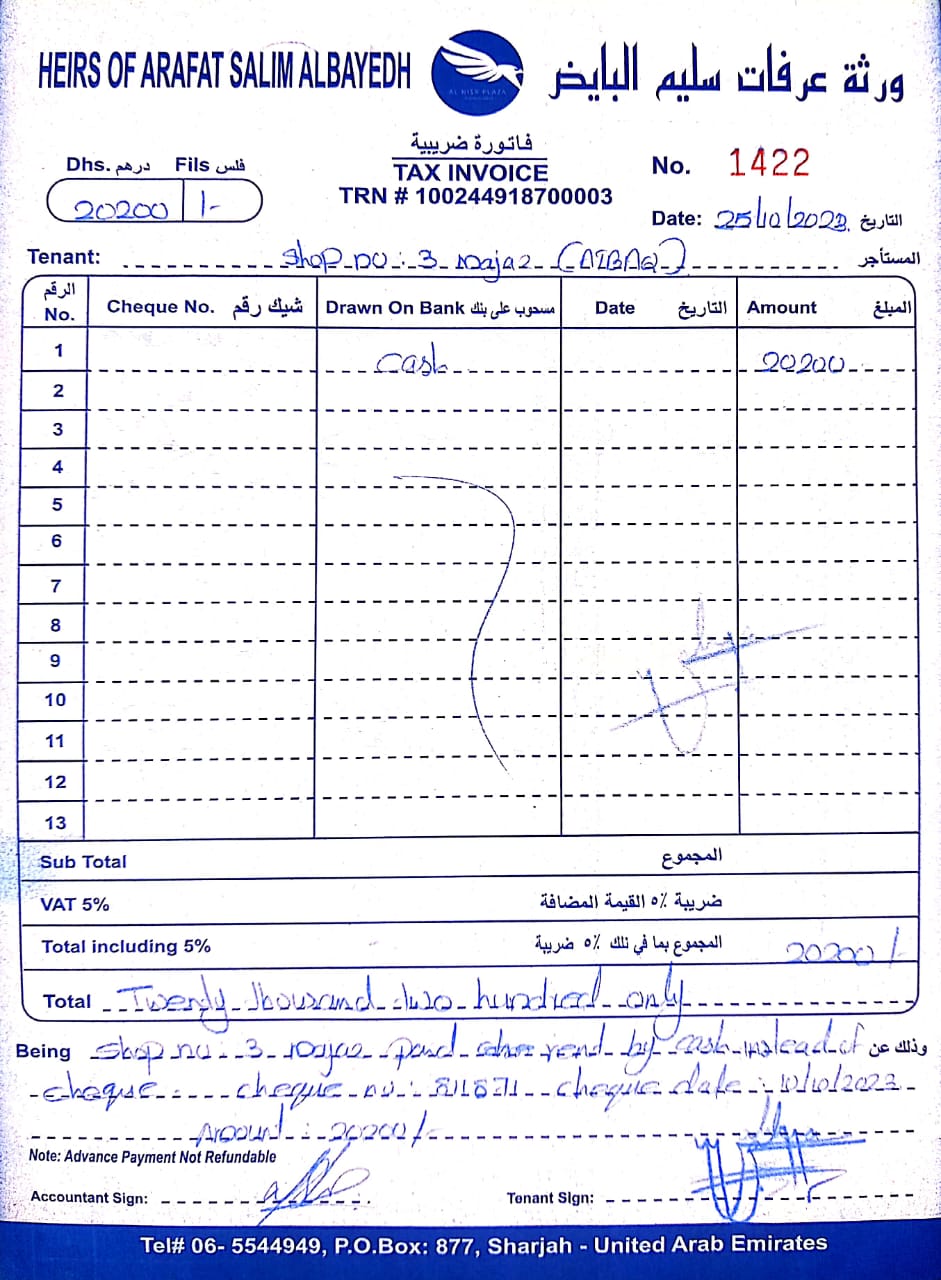 HEIRS OF ARAFAT SALIM ALBAYEDH
AL NISR PLAZA
ورثة عرفات سليم البايض
فاتورة ضريبية
TAX INVOICE
TRN # 100244918700003
Dhs. درهم Fils فلس
20200 /-
No. 1422
Date: 25/10/2023 التاريخ
Tenant: Shop no : 3 majaz (AIBAQ) المستأجر
الرقم No. Cheque No. شيك رقم Drawn On Bank مسحوب على بنك Date التاريخ Amount المبلغ
1 Cash 20200
2
3
4
5
6
7
8
9
10
11
12
13
Sub Total المجموع
VAT 5% ضريبة ٥٪ القيمة المضافة
Total including 5% المجموع بما في ذلك ٥٪ ضريبة 20200/-
Total Twenty thousand two hundred only
Being Shop no : 3 majaz paid rend by cash instead of وذلك عن
cheque : cheque no : cheque date : 10/10/2023
Amount : 20200/-
Note: Advance Payment Not Refundable
Accountant Sign:
Tenant Sign:
Tel# 06- 5544949, P.O.Box: 877, Sharjah - United Arab Emirates